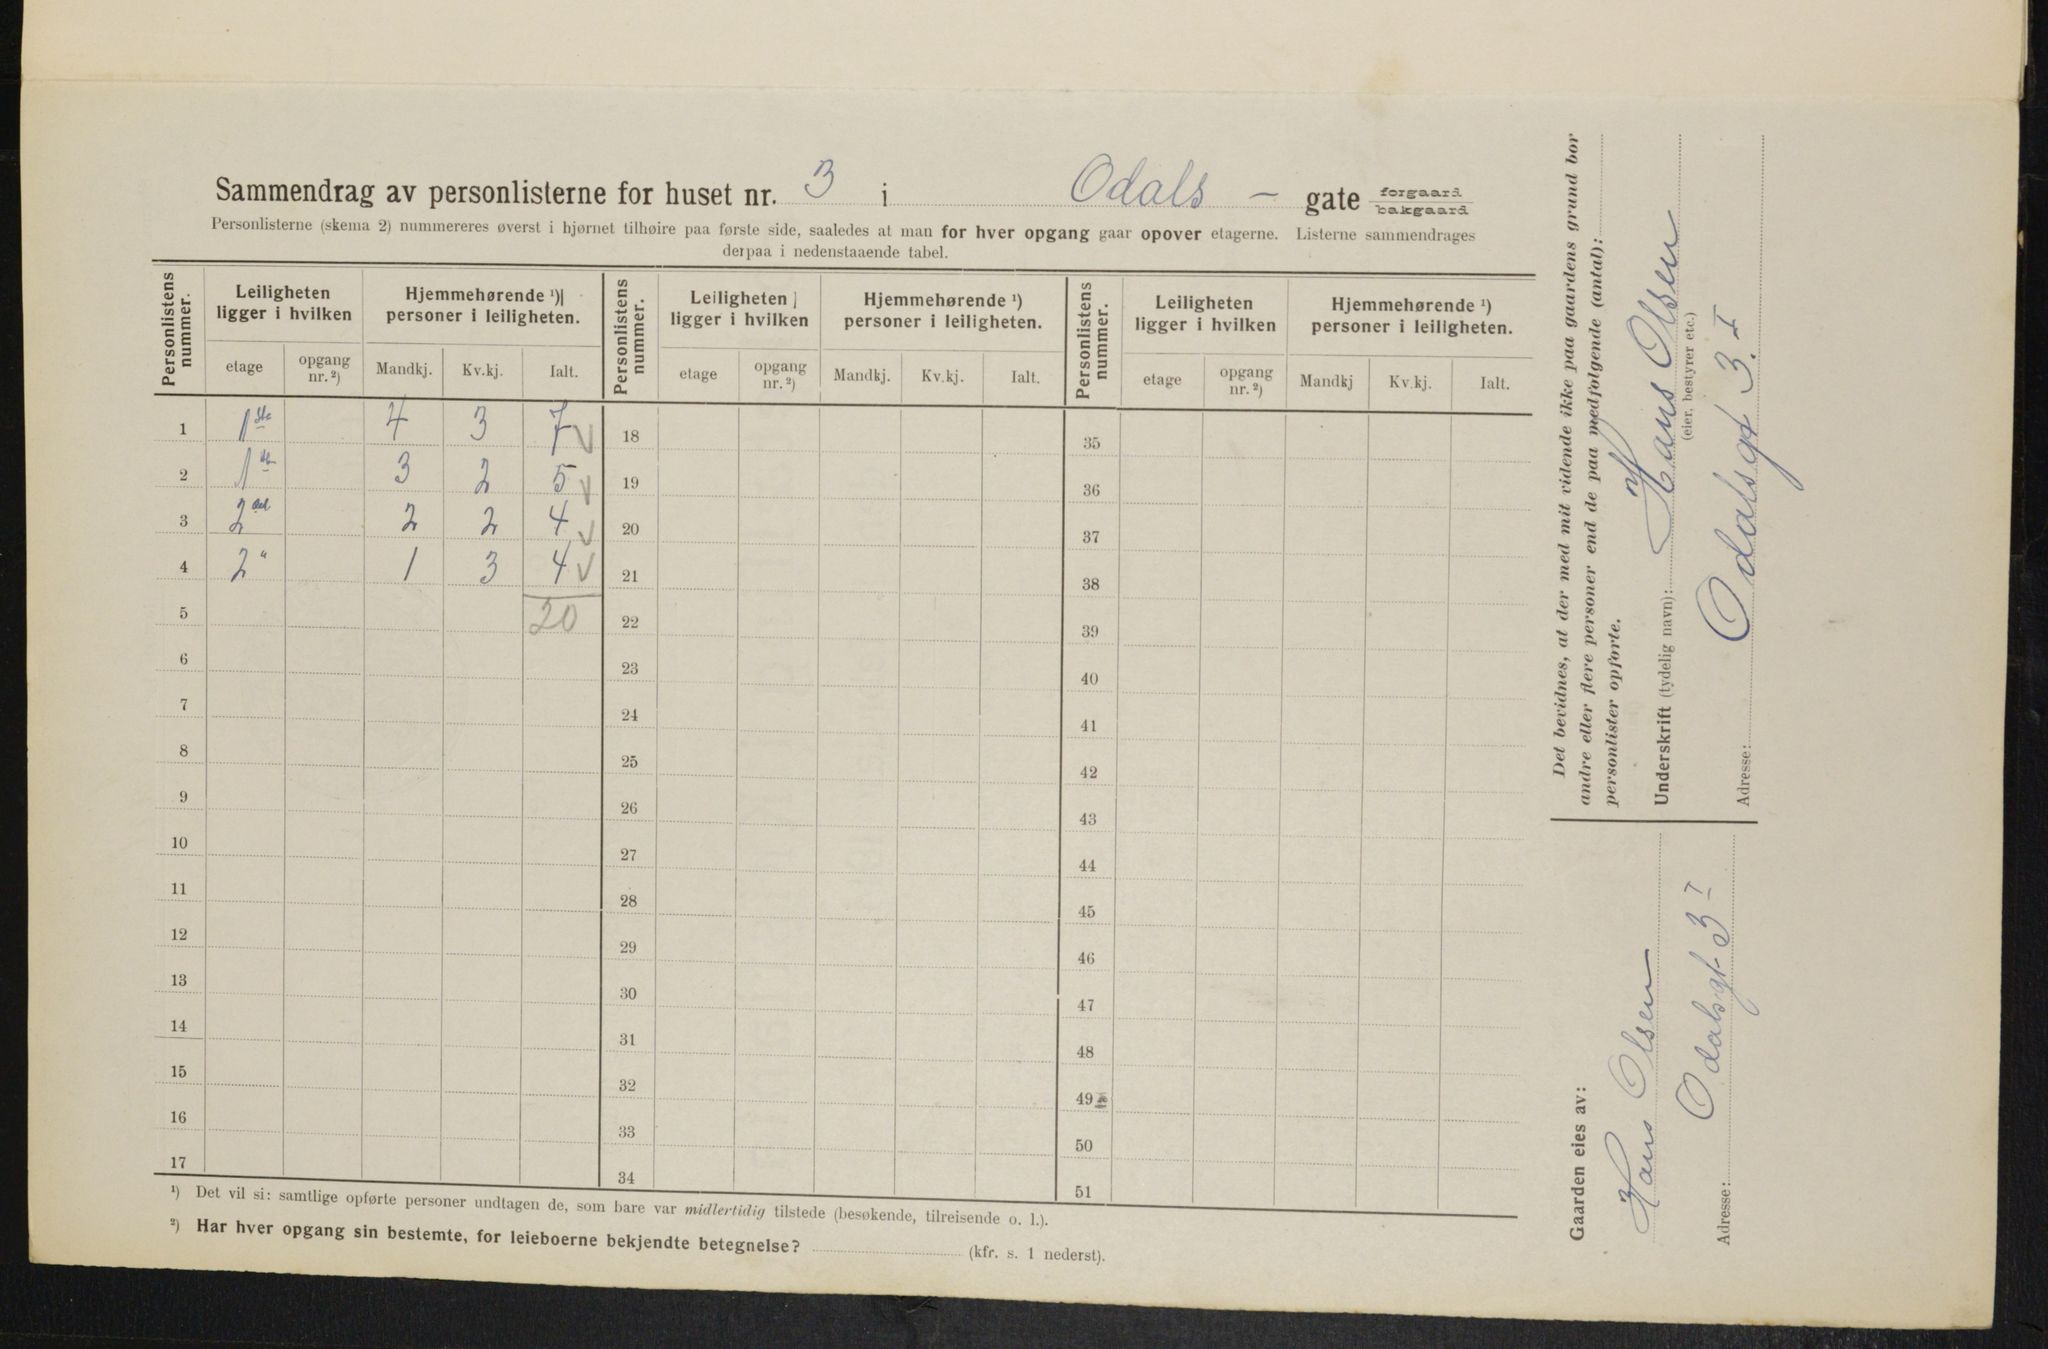 Sammendrag av personlisterne for huset nr. 3 i Odals – gate forgaard bakgaard
Personlisterne (skema 2) nummereres øverst i hjørnet tilhøire paa første side, saaledes at man for hver opgang gaar opover etagerne. Listerne sammendrages
derpaa i nedenstaaende tabel.
Personlistens nummer. Leiligheten ligger i hvilken Hjemmehørende ¹) personer i leiligheten. Personlistens nummer. Leiligheten ligger i hvilken Hjemmehørende ¹) personer i leiligheten. Personlistens nummer. Leiligheten ligger i hvilken Hjemmehørende ¹) personer i leiligheten.
etage opgang nr. ²) Mandkj. Kv.kj. Ialt. etage opgang nr. ²) Mandkj. Kv.kj. Ialt. etage opgang nr. ²) Mandkj Kv.kj. Ialt.
1 1ste 4 3 7 18 35
2 1ste 3 2 5 19 36
3 2den 2 2 4 20 37
4 2 " 1 3 4 21 38
5 20 22 39
6 23 40
7 24 41
8 25 42
9 26 43
10 27 44
11 28 45
12 29 46
13 30 47
14 31 48
15 32 49
16 33 50
17 34 51
¹) Det vil si: samtlige opførte personer undtagen de, som bare var midlertidig tilstede (besøkende, tilreisende o. l.).
²) Har hver opgang sin bestemte, for leieboerne bekjendte betegnelse? (kfr. s. 1 nederst).
Det bevidnes, at der med mit vidende ikke paa gaardens grund bor
andre eller flere personer end de paa medfølgende (antal):
personlister opførte.
Underskrift (tydelig navn): Hans Olsen
(eier, bestyrer etc.)
Adresse: Odalsgt 3. I
Gaarden eies av:
Hans Olsen
Adresse: Odalsgt 3 I